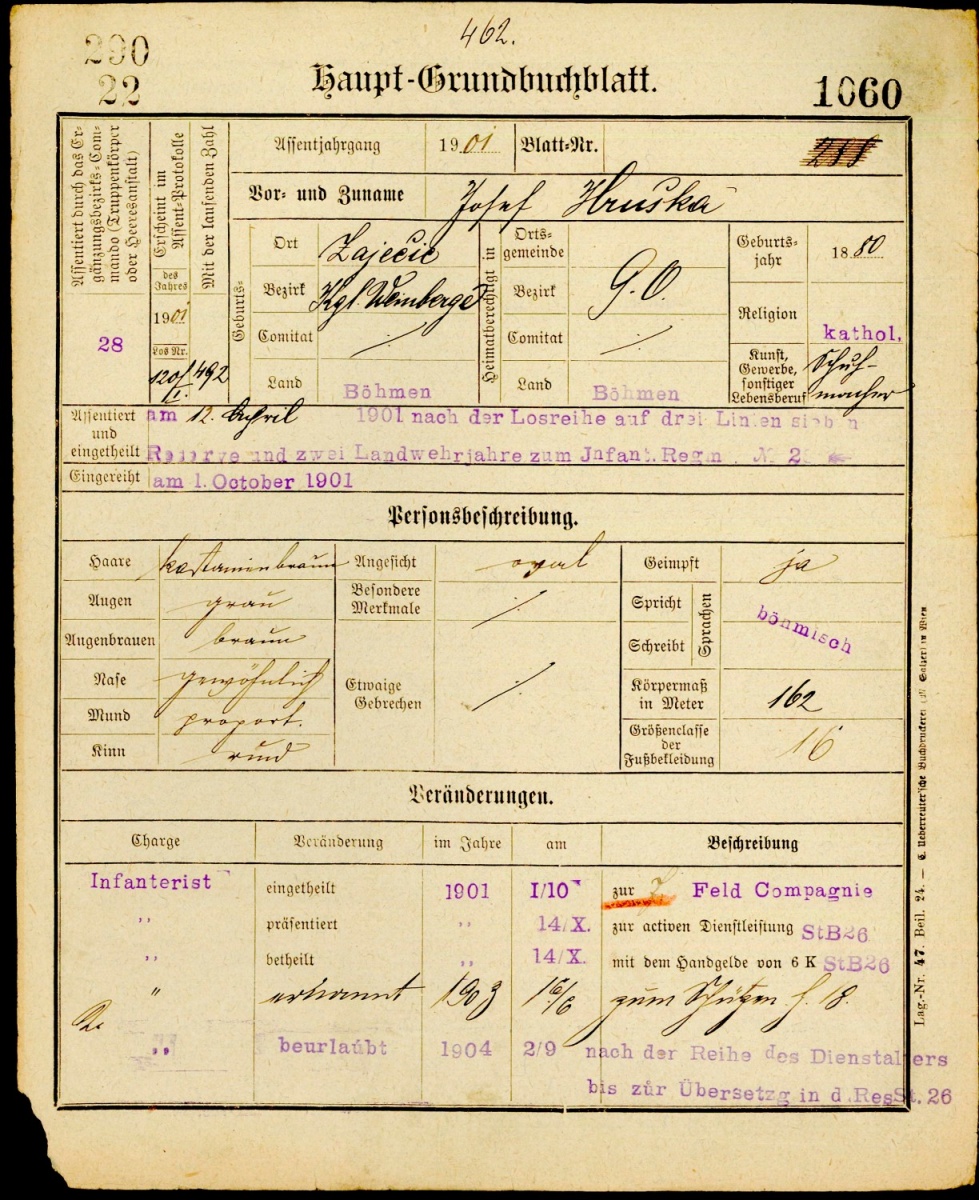 462.
290
22
Haupt-Grundbuchblatt.
1060
Assentiert durch das Er-
gänzungsbezirks-Com-
mando (Truppenkörper
oder Heeresanstalt)
28
Erscheint im
Assent-Protokolle
des
Jahres
1901
Los Nr.
120/II.
Mit der laufenden Zahl
492
Assentjahrgang 1901 Blatt-Nr.
Vor- und Zuname Josef Hruska
Geburts-
Ort Zaječic
Bezirk Kgl. Weinberge
Comitat ./.
Land Böhmen
Heimatberechtigt in
Orts-
gemeinde
Bezirk G.O.
Comitat ./.
Land Böhmen
Geburts-
jahr 1880
Religion kathol.
Kunst,
Gewerbe,
sonstiger
Lebensberuf
Schuh-
macher
Assentiert
und
eingetheilt
am 12. April 1901 nach der Losreihe auf drei Linien sieben
Reserve und zwei Landwehrjahre zum Jnfant. Regm. № 28
Eingereiht am 1. October 1901
Personsbeschreibung.
Haare kastanienbraun
Augen grau
Augenbrauen braun
Nase gewöhnlich
Mund proport.
Kinn rund
Angesicht oval
Besondere
Merkmale ./.
Etwaige
Gebrechen ./.
Geimpft ja
Spricht
Schreibt
Sprachen
böhmisch
Körpermaß
in Meter 162
Größenclasse
der
Fußbekleidung 16
Veränderungen.
Charge Veränderung im Jahre am Beschreibung
Infanterist eingetheilt 1901 I/10 zur 7. Feld Compagnie
,, präsentiert ,, 14/X. zur activen Dienstleistung StB26
,, betheilt ,, 14/X. mit dem Handgelde von 6 K StB26
" erkannt 1903 16/6 zum Schützen f. 18.
,, beurlaubt 1904 2/9 nach der Reihe des Dienstalters
bis zur Übersetzg in d. Res St. 26
Lag.-Nr. 47. Beil. 24. — C. Ueberreuter'sche Buchdruckerei (M. Salzer) in Wien